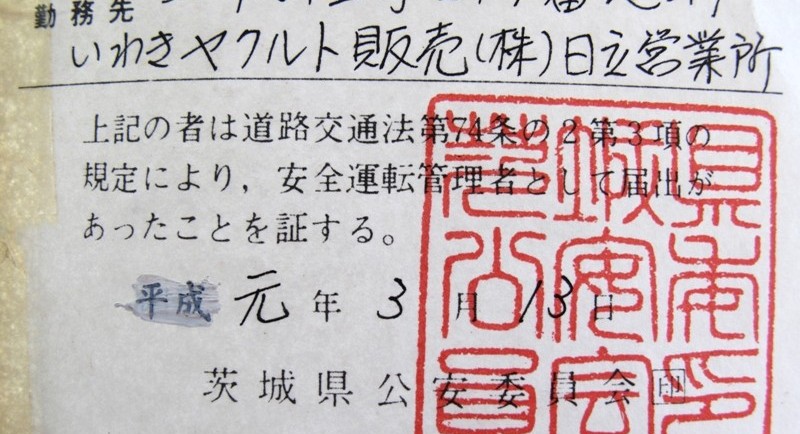 勤務先
いわきヤクルト販売(株)日立営業所
上記の者は道路交通法第74条の2第3項の
規定により，安全運転管理者として届出が
あったことを証する。
平成元年3月13日
茨城県公安委員会印